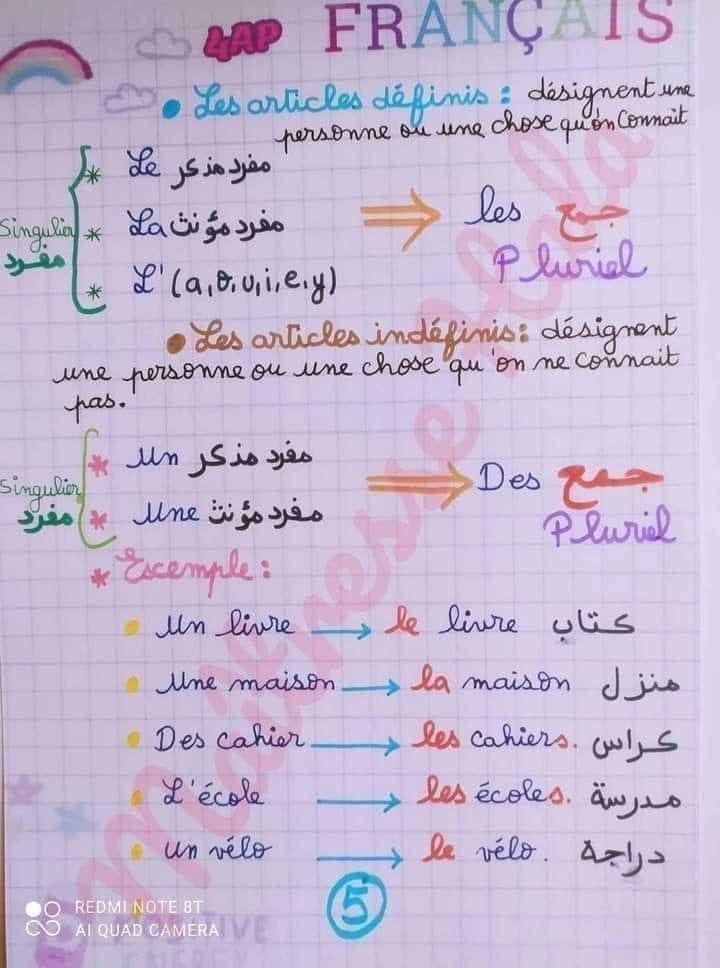 4AP FRANÇAIS
• Les articles définis : désignent une
personne ou une chose qu'on Connait
* Le مفرد مذكر
Singulier * La مفرد مؤنث les جمع
مفرد Pluriel
* L' (a, o, u, i, e, y)
• Les articles indéfinis : désignent
une personne ou une chose qu'on ne connait
pas.
* Un مفرد مذكر
Singulier Des جمع
مفرد * Une مفرد مؤنث Pluriel
* Excemple :
• Un livre → le livre كتاب
• Une maison → la maison منزل
• Des cahier → les cahiers. كراس
• L'école → les écoles. مدرسة
• un vélo → le vélo. دراجة
5
REDMI NOTE 8T
AI QUAD CAMERA
POSITIVE
ENERGY